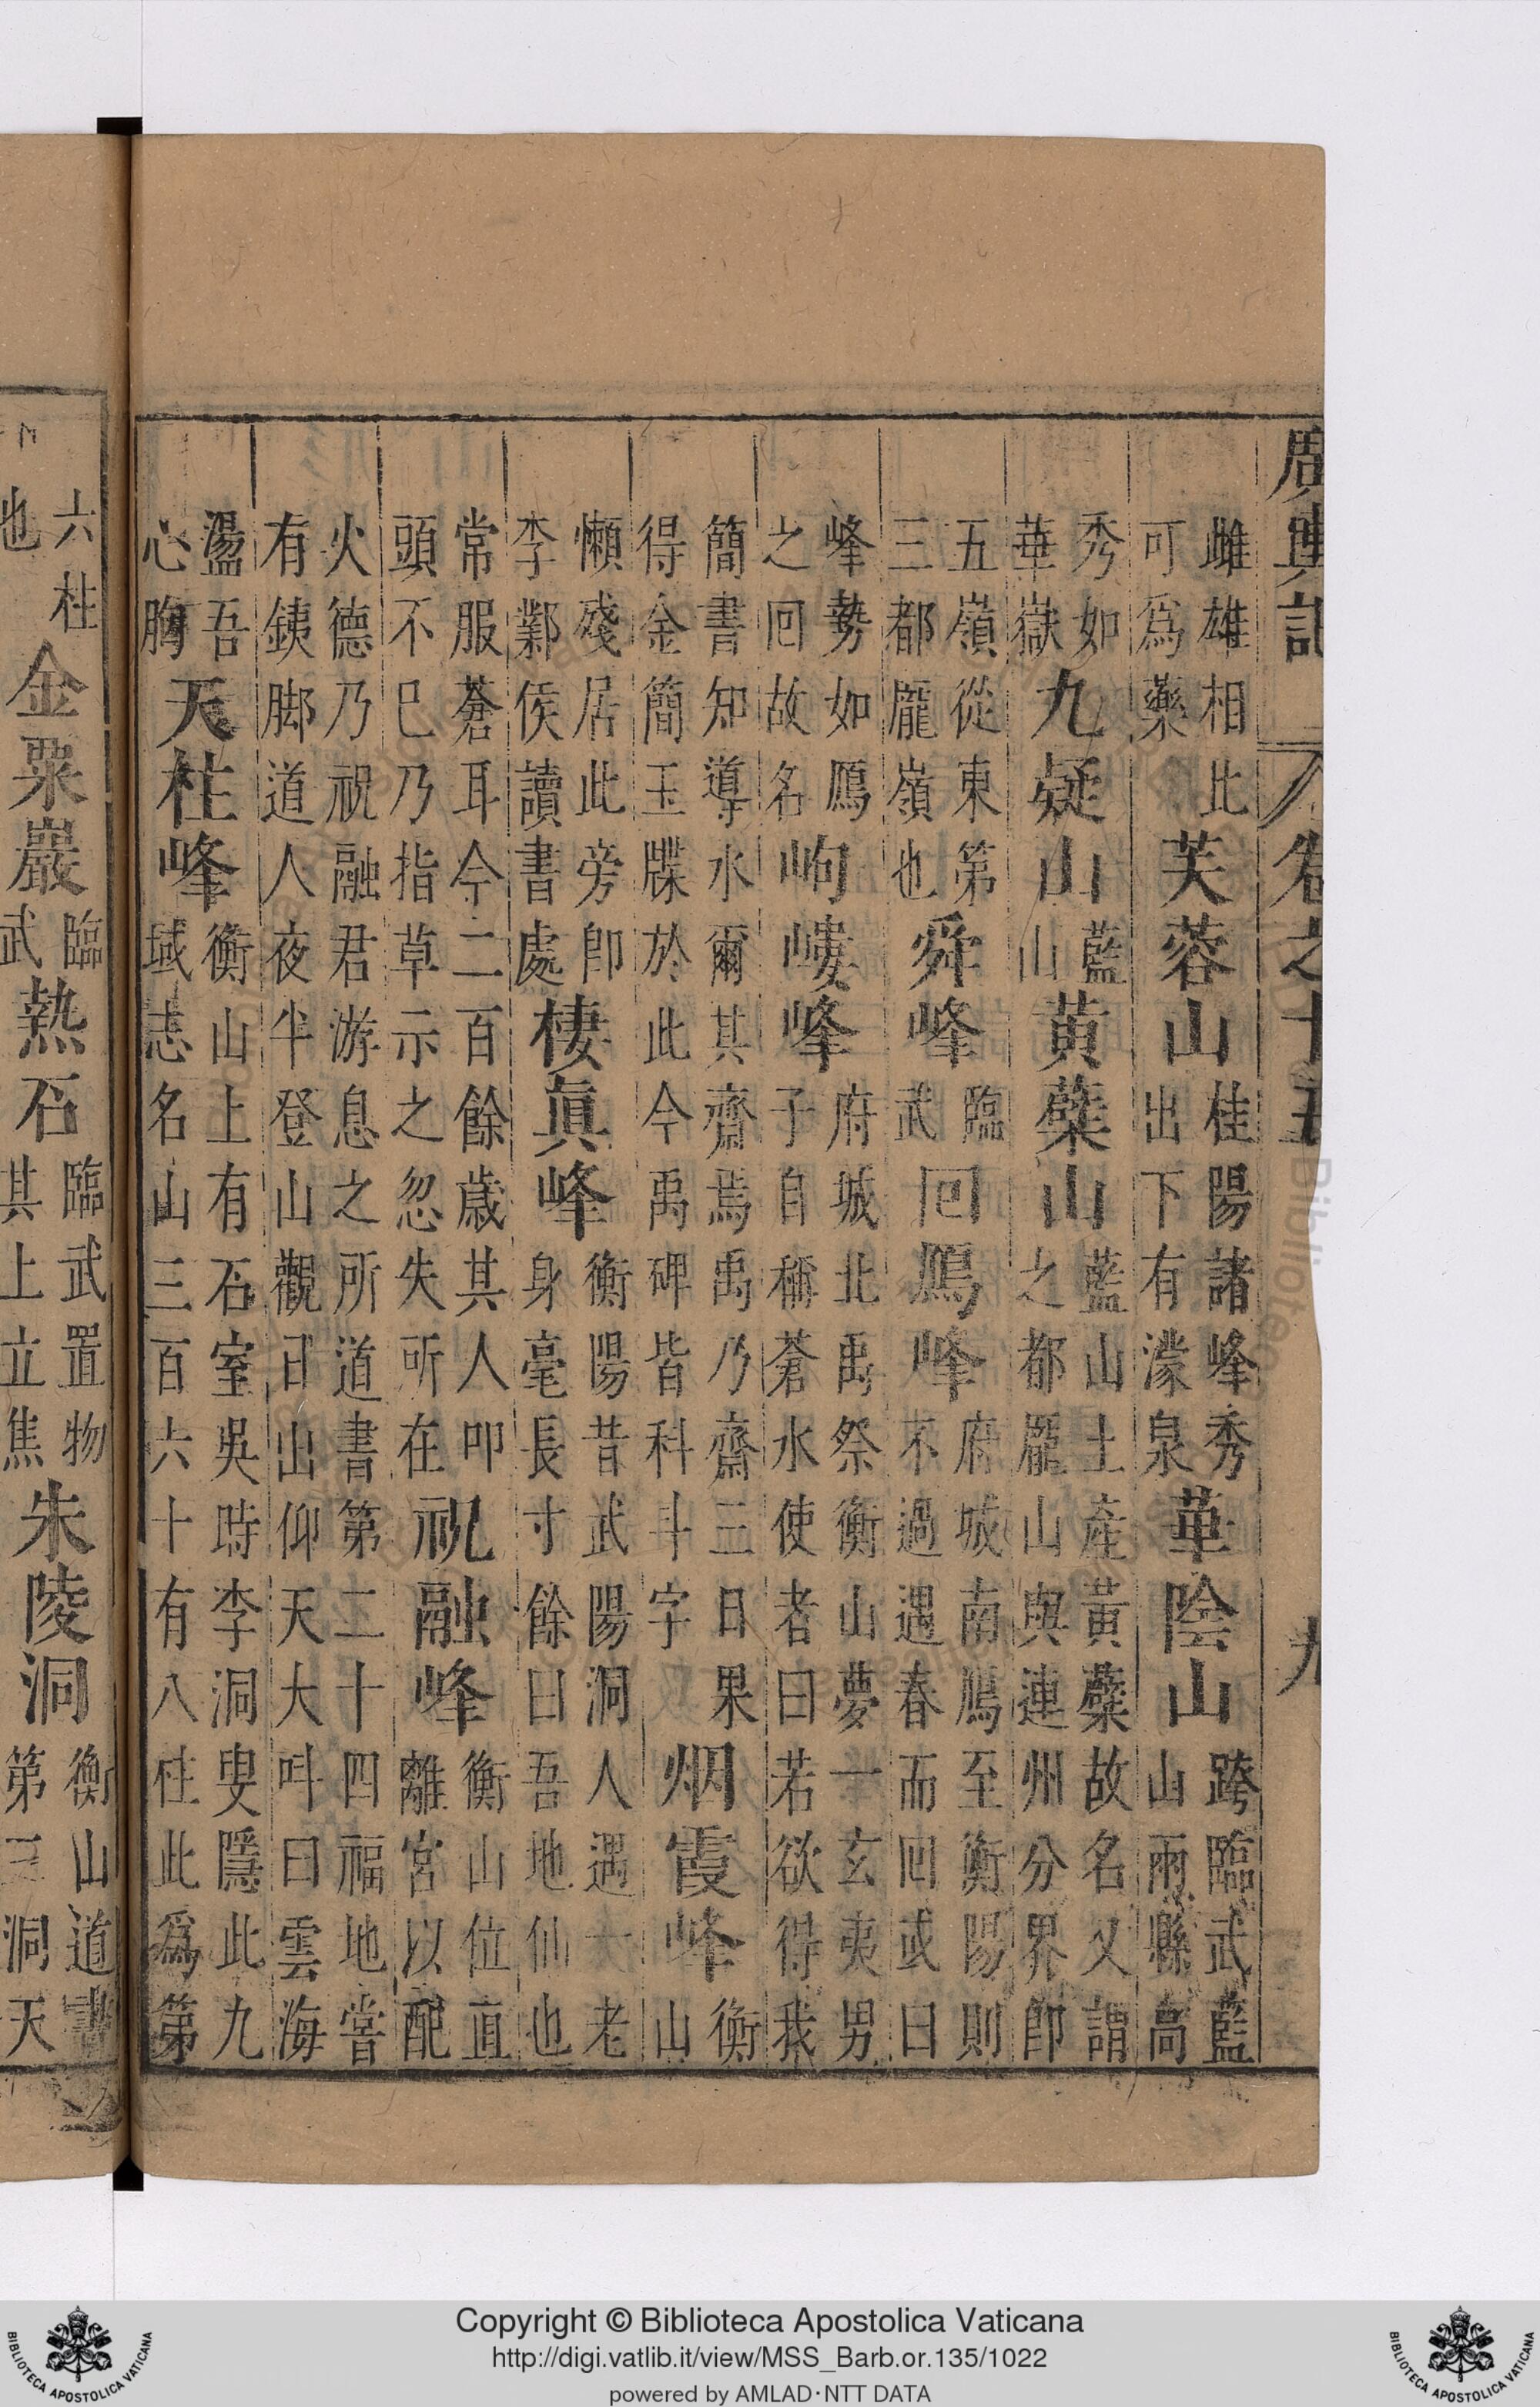 廣輿記 卷之十五 九
雌雄相比可爲藥芙蓉山桂陽諸峰秀出下有濛泉華陰山跨臨武藍山兩縣高
秀如華嶽九疑山藍山黃蘗山藍山土產黃蘗故名又謂之都龎山與連州分界卽
五嶺從東第三都龎嶺也舜峰臨武回鴈峰府城南鴈至衡陽則不過遇春而回或曰
峰勢如鴈之回故名岣嶁峰府城北禹祭衡山夢一玄夷男子自稱蒼水使者曰若欲得我
簡書知導水爾其齋焉禹乃齋三日果得金簡玉牒於此今禹碑皆科斗字烟霞峰衡山
懶殘居此旁卽李鄴侯讀書處棲眞峰衡陽昔武陽洞人遇大老身毫長寸餘曰吾地仙也
常服蒼耳今二百餘歲其人叩頭不巳乃指草示之忽失所在祝融峰衡山位直離宮以配
火德乃祝融君游息之所道書第二十四福地嘗有銕脚道人夜半登山觀日出仰天大呌曰雲海
盪吾心胸天柱峰衡山上有石室吳時李洞叟隱此九域志名山三百六十有八柱此爲第
六柱金粟巖臨武熱石臨武置物其上立焦朱陵洞衡山道書第三洞天
Copyright © Biblioteca Apostolica Vaticana
http://digi.vatlib.it/view/MSS_Barb.or.135/1022
powered by AMLAD·NTT DATA
BIBLIOTECA APOSTOLICA VATICANA
BIBLIOTECA APOSTOLICA VATICANA